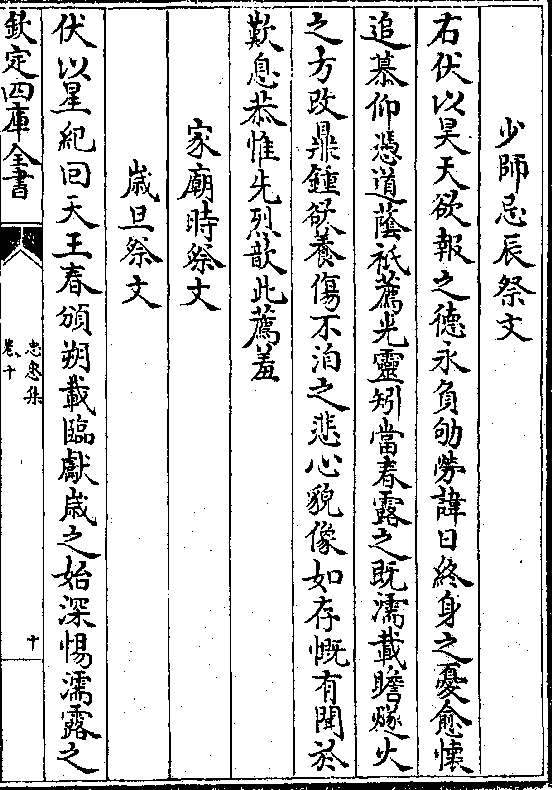 少師忌辰祭文
右伏以昊天欲報之德永負劬勞諱日終身之憂愈懷
追慕仰憑道蔭祇薦光靈矧當春露之既濡載瞻燧火
之方改鼎鍾欲養傷不洎之悲心貌像如存慨有聞於
歎息恭惟先烈歆此薦羞
家廟時祭文
歲旦祭文
伏以星紀回天王春頒朔載臨獻歲之始深惕濡露之
欽定四庫全書
忠惠集
卷十
十